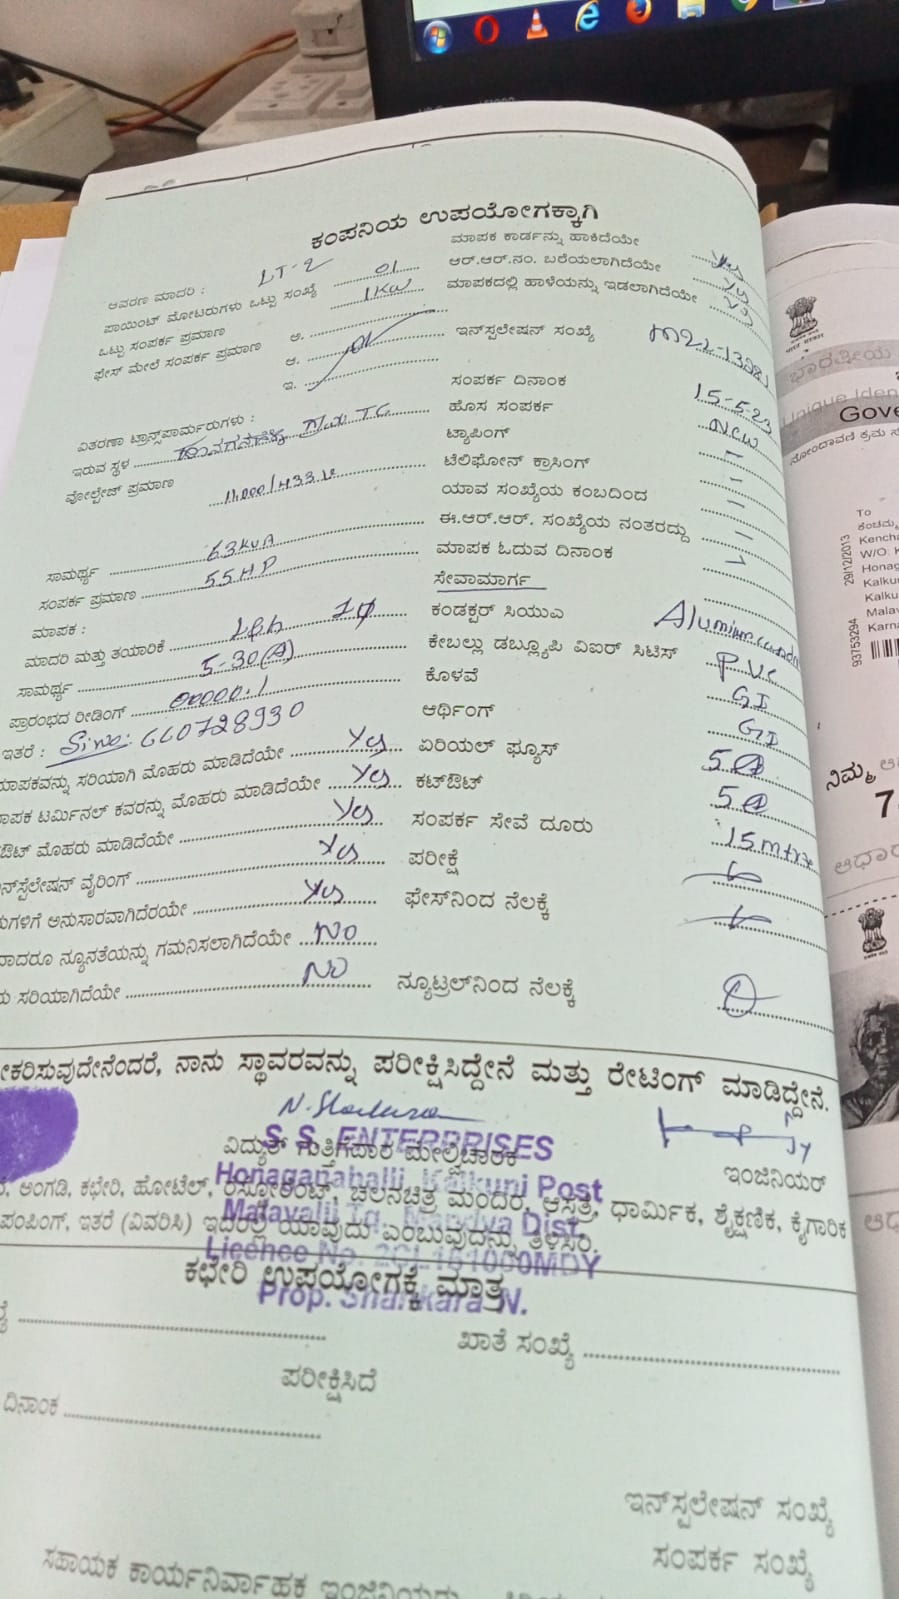 ಕಂಪನಿಯ ಉಪಯೋಗಕ್ಕಾಗಿ
ಮಾಪಕ ಕಾರ್ಡನ್ನು ಹಾಕಿದೆಯೇ Yes
ಆವರಣ ಮಾದರಿ : LT-2
ಆರ್.ಆರ್.ನಂ. ಬರೆಯಲಾಗಿದೆಯೇ Yes
ಪಾಯಿಂಟ್ ಮೋಟರುಗಳು ಒಟ್ಟು ಸಂಖ್ಯೆ 01
ಮಾಪಕದಲ್ಲಿ ಹಾಳೆಯನ್ನು ಇಡಲಾಗಿದೆಯೇ
ಒಟ್ಟು ಸಂಪರ್ಕ ಪ್ರಮಾಣ 1KW
ಫೇಸ್ ಮೇಲೆ ಸಂಪರ್ಕ ಪ್ರಮಾಣ ಅ.
ಇನ್‌ಸ್ಪಲೇಷನ್ ಸಂಖ್ಯೆ
ಆ.
ಇ.
ಸಂಪರ್ಕ ದಿನಾಂಕ 15-5-23
ವಿತರಣಾ ಟ್ರಾನ್ಸ್‌ಪಾರ್ಮರುಗಳು :
ಹೊಸ ಸಂಪರ್ಕ New
ಇರುವ ಸ್ಥಳ TC
ಟ್ಯಾಪಿಂಗ್ –
ವೋಲ್ಟೇಜ್ ಪ್ರಮಾಣ 11000/433 V
ಟೆಲಿಫೋನ್ ಕ್ರಾಸಿಂಗ್ –
ಯಾವ ಸಂಖ್ಯೆಯ ಕಂಬದಿಂದ –
ಸಾಮರ್ಥ್ಯ 63KVA
ಈ.ಆರ್.ಆರ್. ಸಂಖ್ಯೆಯ ನಂತರದ್ದು –
ಸಂಪರ್ಕ ಪ್ರಮಾಣ 55HP
ಮಾಪಕ ಓದುವ ದಿನಾಂಕ
ಮಾಪಕ :
ಸೇವಾಮಾರ್ಗ
ಮಾದರಿ ಮತ್ತು ತಯಾರಿಕೆ 1φ
ಕಂಡಕ್ಟರ್ ಸಿಯುಎ
ಸಾಮರ್ಥ್ಯ 5-30(A)
ಕೇಬಲ್ಲು ಡಬ್ಲ್ಯೂಪಿ ವಿಐರ್ ಸಿಟಿಸ್ PVC
ಪ್ರಾರಂಭದ ರೀಡಿಂಗ್ 00000.1
ಕೊಳವೆ GI
ಇತರೆ : Sl no: 660728930
ಆರ್ಥಿಂಗ್ GI
ಮಾಪಕವನ್ನು ಸರಿಯಾಗಿ ಮೊಹರು ಮಾಡಿದೆಯೇ Yes
ಏರಿಯಲ್ ಫ್ಯೂಸ್ 5A
ಮಾಪಕ ಟರ್ಮಿನಲ್ ಕವರನ್ನು ಮೊಹರು ಮಾಡಿದೆಯೇ Yes
ಕಟ್‌ಔಟ್ 5A
ಔಟ್ ಮೊಹರು ಮಾಡಿದೆಯೇ Yes
ಸಂಪರ್ಕ ಸೇವೆ ದೂರು
ನ್‌ಸ್ಪೆಲೇಷನ್ ವೈರಿಂಗ್ Yes
ಪರೀಕ್ಷೆ
ಗಳಿಗೆ ಅನುಸಾರವಾಗಿದೆರಯೇ Yes
ಫೇಸ್‌ನಿಂದ ನೆಲಕ್ಕೆ
ದಾದರೂ ನ್ಯೂನತೆಯನ್ನು ಗಮನಿಸಲಾಗಿದೆಯೇ NO
ಸರಿಯಾಗಿದೆಯೇ NO
ನ್ಯೂಟ್ರಲ್‌ನಿಂದ ನೆಲಕ್ಕೆ
ಕರಿಸುವುದೇನೆಂದರೆ, ನಾನು ಸ್ಥಾವರವನ್ನು ಪರೀಕ್ಷಿಸಿದ್ದೇನೆ ಮತ್ತು ರೇಟಿಂಗ್ ಮಾಡಿದ್ದೇನೆ.
S.S. ENTERPRISES
ವಿದ್ಯುತ್ ಗುತ್ತಿಗೆದಾರ ಮೇಲ್ವಿಚಾರಕ
ಇಂಜಿನಿಯರ್
Honaganahalli, Kalkuni Post
ಅಂಗಡಿ, ಕಛೇರಿ, ಹೋಟೆಲ್, ರೆಸ್ಟೋರೆಂಟ್, ಚಲನಚಿತ್ರ ಮಂದಿರ, ಆಸ್ಪತ್ರೆ, ಧಾರ್ಮಿಕ, ಶೈಕ್ಷಣಿಕ, ಕೈಗಾರಿಕ
Malavalli Tq. Mandya Dist.
ಪಂಪಿಂಗ್, ಇತರೆ (ವಿವರಿಸಿ) ಇದರಲ್ಲಿ ಯಾವುದು ಎಂಬುವುದನ್ನು ತಿಳಿಸಿರಿ.
Licence No. 2CL161000MDY
ಕಛೇರಿ ಉಪಯೋಗಕ್ಕೆ ಮಾತ್ರ
Prop. Shankara N.
ಖಾತೆ ಸಂಖ್ಯೆ
ಪರೀಕ್ಷಿಸಿದೆ
ದಿನಾಂಕ
ಇನ್‌ಸ್ಪಲೇಷನ್ ಸಂಖ್ಯೆ
ಸಂಪರ್ಕ ಸಂಖ್ಯೆ
ಸಹಾಯಕ ಕಾರ್ಯನಿರ್ವಾಹಕ ಇಂಜಿನಿಯರು
ಭಾರತೀಯ
Unique Iden
Gove
ನೋಂದಾವಣಿ ಕ್ರಮ
To
ಕೆಂಚಮ್ಮ
Kencha
W/O:
Honag
Kalkur
Kalku
Malav
Karna
29/12/2013
93753294
ನಿಮ್ಮ
7
ಆಧಾರ